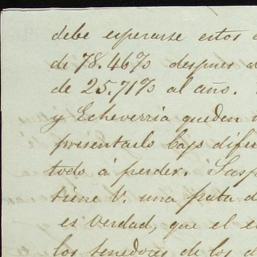 debe esperarse estos
de 78.46% despues
de 25.71% al año.
y Echeverria queden
presentarlo bajo difer
todo á perder.
tiene V. una prata d
es verdad, que el e
los tenedores de los d